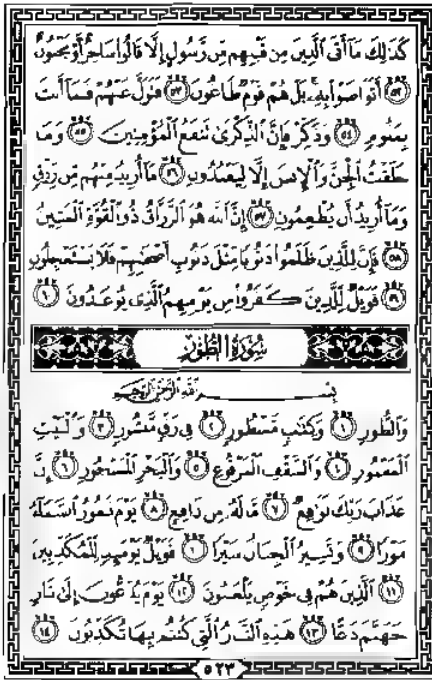 كَذَٰلِكَ مَا أَتَى الَّذِينَ مِن قَبْلِهِم مِّن رَّسُولٍ إِلَّا قَالُوا سَاحِرٌ أَوْ مَجْنُونٌ
﴿٥٢﴾ أَتَوَاصَوْا بِهِ بَلْ هُمْ قَوْمٌ طَاغُونَ ﴿٥٣﴾ فَتَوَلَّ عَنْهُمْ فَمَا أَنتَ
بِمَلُومٍ ﴿٥٤﴾ وَذَكِّرْ فَإِنَّ الذِّكْرَىٰ تَنفَعُ الْمُؤْمِنِينَ ﴿٥٥﴾ وَمَا
خَلَقْتُ الْجِنَّ وَالْإِنسَ إِلَّا لِيَعْبُدُونِ ﴿٥٦﴾ مَا أُرِيدُ مِنْهُم مِّن رِّزْقٍ
وَمَا أُرِيدُ أَن يُطْعِمُونِ ﴿٥٧﴾ إِنَّ اللَّهَ هُوَ الرَّزَّاقُ ذُو الْقُوَّةِ الْمَتِينُ
﴿٥٨﴾ فَإِنَّ لِلَّذِينَ ظَلَمُوا ذَنُوبًا مِّثْلَ ذَنُوبِ أَصْحَابِهِمْ فَلَا يَسْتَعْجِلُونِ
﴿٥٩﴾ فَوَيْلٌ لِّلَّذِينَ كَفَرُوا مِن يَوْمِهِمُ الَّذِي يُوعَدُونَ ﴿٦٠﴾
سُورَةُ الطُّورِ
بِسْمِ اللَّهِ الرَّحْمَٰنِ الرَّحِيمِ
وَالطُّورِ ﴿١﴾ وَكِتَابٍ مَّسْطُورٍ ﴿٢﴾ فِي رَقٍّ مَّنشُورٍ ﴿٣﴾ وَالْبَيْتِ
الْمَعْمُورِ ﴿٤﴾ وَالسَّقْفِ الْمَرْفُوعِ ﴿٥﴾ وَالْبَحْرِ الْمَسْجُورِ ﴿٦﴾ إِنَّ
عَذَابَ رَبِّكَ لَوَاقِعٌ ﴿٧﴾ مَّا لَهُ مِن دَافِعٍ ﴿٨﴾ يَوْمَ تَمُورُ السَّمَاءُ
مَوْرًا ﴿٩﴾ وَتَسِيرُ الْجِبَالُ سَيْرًا ﴿١٠﴾ فَوَيْلٌ يَوْمَئِذٍ لِّلْمُكَذِّبِينَ
﴿١١﴾ الَّذِينَ هُمْ فِي خَوْضٍ يَلْعَبُونَ ﴿١٢﴾ يَوْمَ يُدَعُّونَ إِلَىٰ نَارِ
جَهَنَّمَ دَعًّا ﴿١٣﴾ هَٰذِهِ النَّارُ الَّتِي كُنتُم بِهَا تُكَذِّبُونَ ﴿١٤﴾
٥٢٣